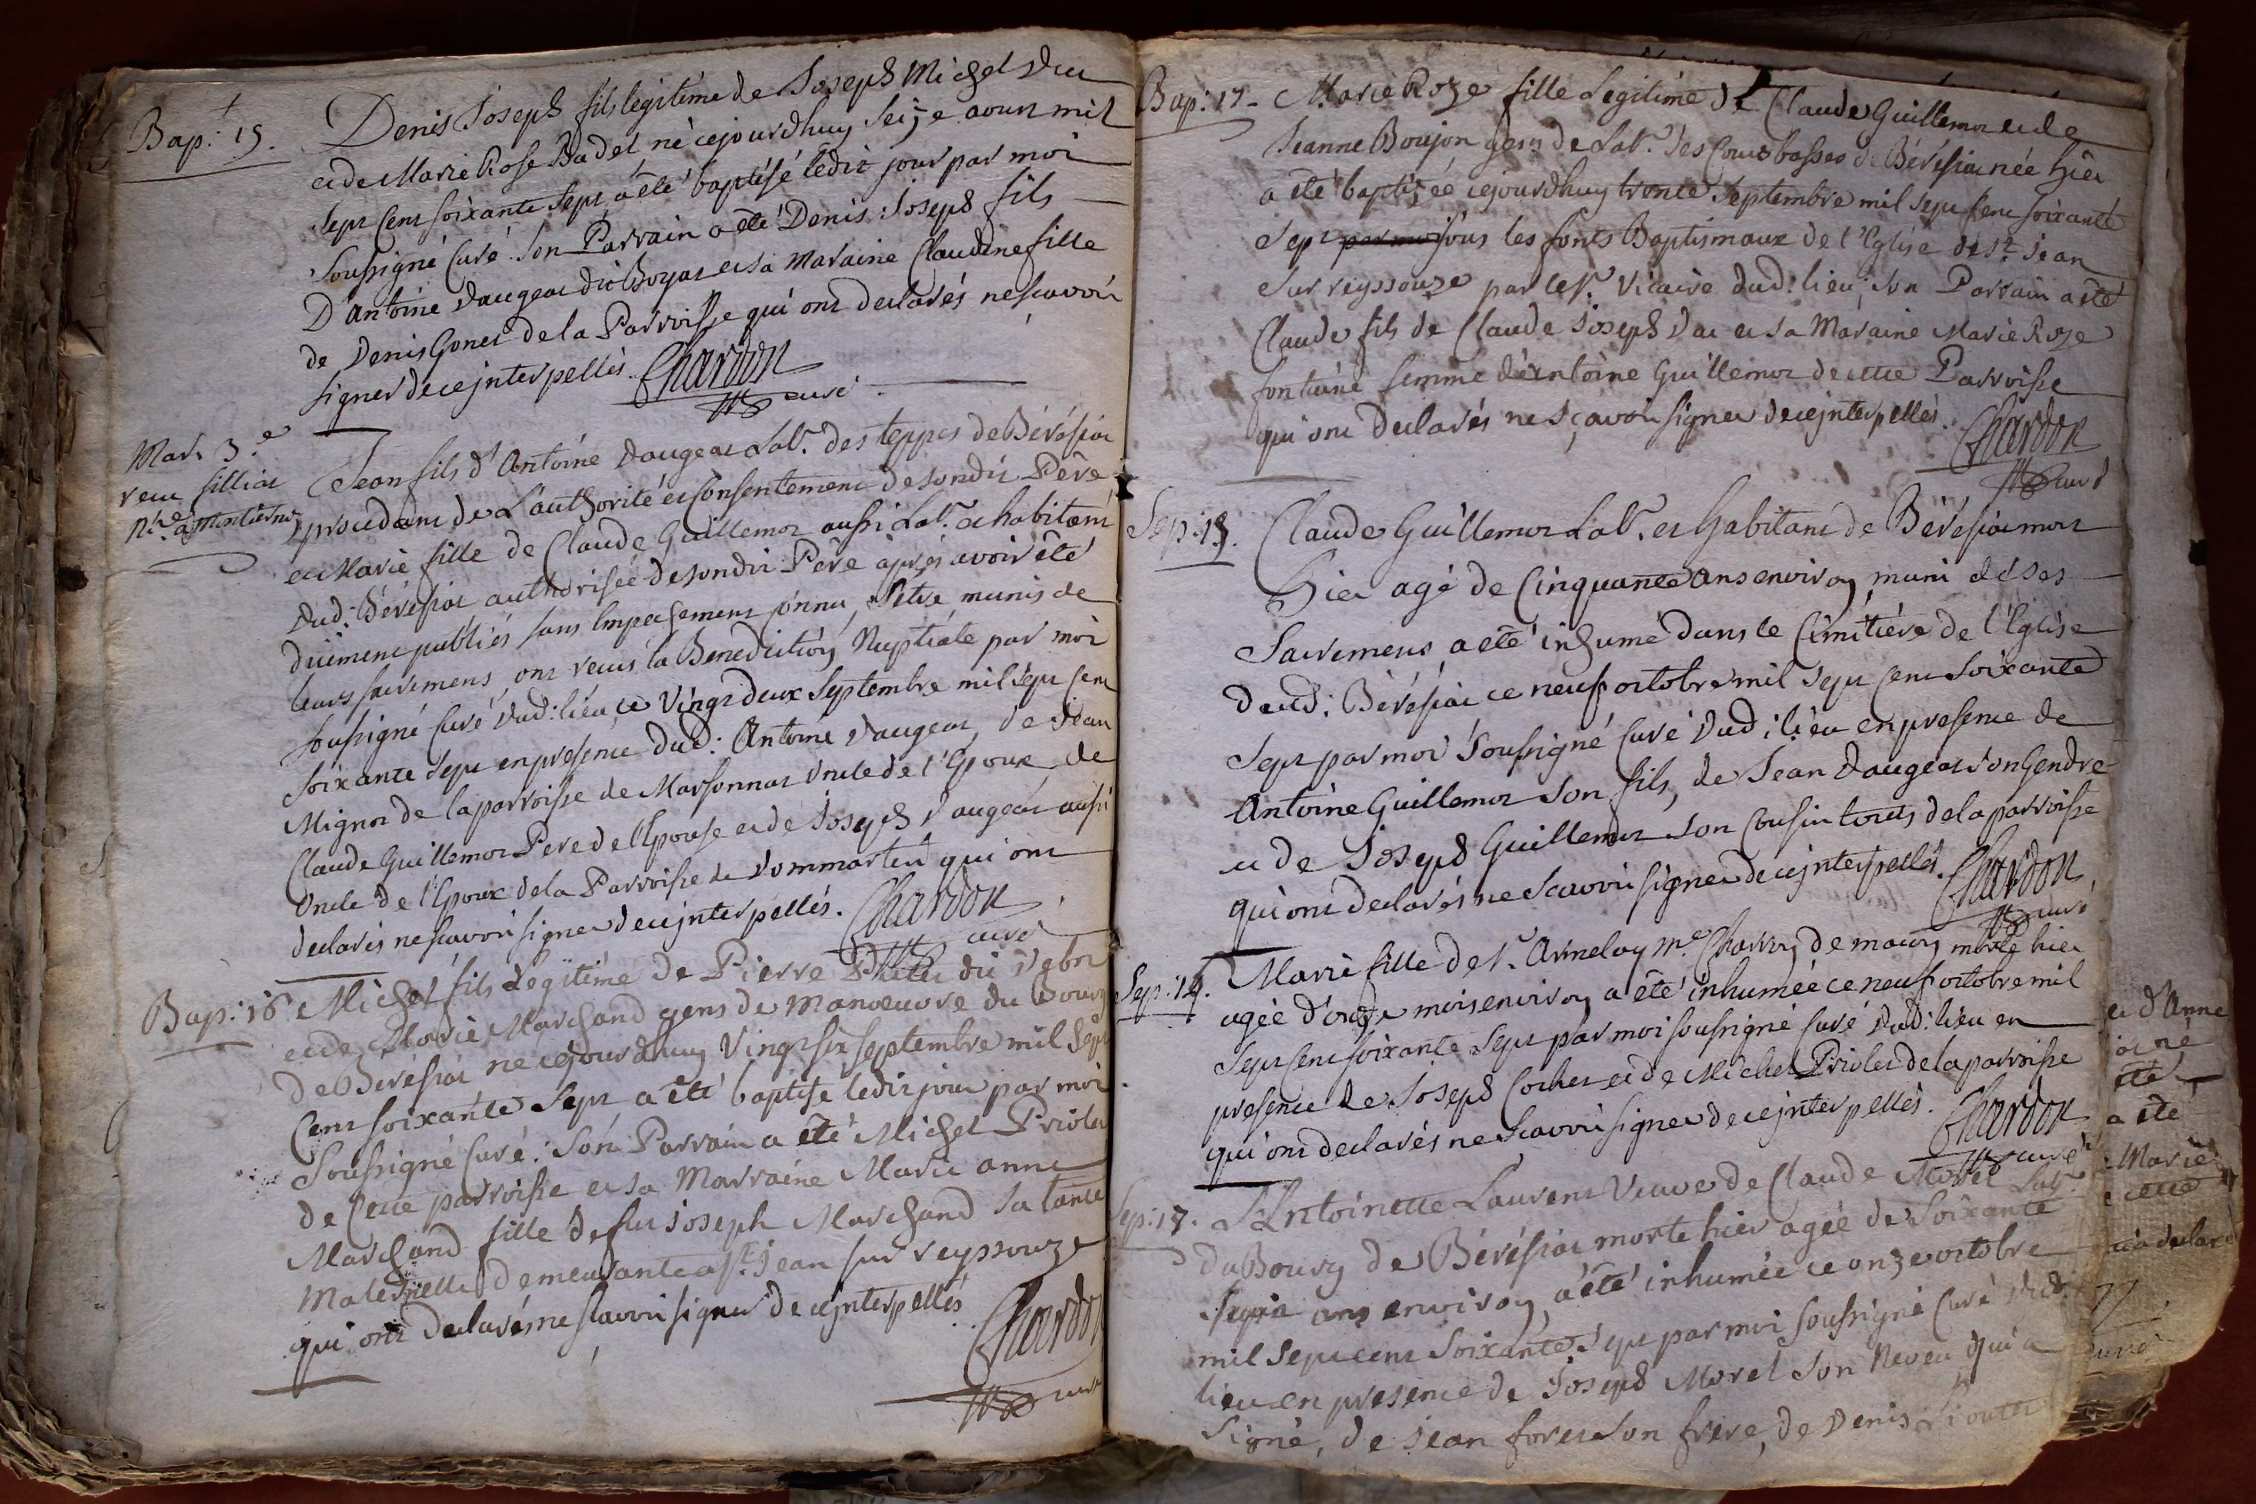 Bap.t 15.
Denis Joseph fils legitime de Joseph Michel Duc
et de Marie Rose Badet né cejourdhuy seize aoust mil
sept cent soixante sept a été baptisé ledit jour par moi
soussigné Curé. Son Parrain a été Denis Joseph fils
D'Antoine Daugeat dit Boyat et sa maraine Claudine fille
de Denis Gonet de la Parroisse qui ont declarés ne scavoir
signer de ce jnterpellés. Chardon
curé
Mar. 3.e
Jean fils d'Antoine Daugeat Lab.r des teppes de Béréziat
procedant de L'authorité et Consentement de sondit Père
et Marie fille de Claude Guillemot aussi Lab.r et habitant
dud: Béréziat authorisée de sondit Père après avoir été
düement publiés sans Empechement connu, Et munis de
leurs sacremens, ont reçus la Benediction Nuptiale par moi
soussigné Curé dud: lieu ce Vingt deux septembre mil sept cent
soixante sept en presence dud: Antoine Daugeat, de Jean
Mignot de la parroisse de Marsonnat Oncle de l'Epoux, de
Claude Guillemot Pere de l'Epouse et de Joseph Daugeat aussi
Oncle de l'Epoux de la Parroisse de Dommartin qui ont
declarés ne scavoir signer de ce jnterpellés. Chardon
curé
Bap: 16
Michel fils Légitime de Pierre dit
et de Marie Marchand gens de manoeuvre du Bourg
de Béréziat né cejourdhuy Vingt six septembre mil sept
Cent soixante sept a été baptisé ledit jour par moi
Soussigné Curé: Son Parrain a été Michel Priolet
de Cette parroisse et sa Marraine Marie anne
Marchand fille de feu Joseph Marchand sa tante
Maternelle demeurante a St. Jean sur reyssouze
qui ont declarés ne scavoir signer de ce jnterpellés
Chardon
curé
Bap: 17 - Marie Roze fille Legitime de Claude Guillemot et de
Jeanne Boujon gens de Lab.r des Cours basses de Béréziat née hier
a été baptizéé cejourdhuy trente Septembre mil sept cent soixante
Sept par moi sous les fonts Baptismaux de l'Eglise de St. Jean
Sur reyssouze par le Sr. Vicaire dud: lieu; Son Parrain a été
Claude fils de Claude Joseph Duc et sa Maraine Marie Roze
fontaine femme d'Antoine Guillemot de cette Parroisse
qui ont Declarés ne sçavoir signer de ce jnterpellés. Chardon
curé
Sep: 15.
Claude Guillemot Lab.r et habitant de Béréziat mort
hier agé de Cinquante ans environ, muni de ses
Sacremens, a été inhumé dans le Cimitière de l'Eglise
dud: Béréziat ce neuf octobre mil sept cent soixante
sept par moi Soussigné Curé dud: lieu en presence de
Antoine Guillemot son fils, de Jean Daugeat son Gendre
et de Joseph Guillemot son Cousin touts de la parroisse
qui ont declarés ne scavoir signer de ce jnterpellés. Chardon
curé
Sep: 16.
Marie fille de Sr. m.e de morte hier
agée d'onze mois environ a été inhumée ce neuf octobre mil
sept cent soixante sept par moi soussigné Curé dud: lieu en
presence de Joseph Cochet et de Michel Priolet de la parroisse
qui ont declarés ne scavoir signer de ce jnterpellés. Chardon
curé
Sep: 17.
Antoinette Laurent Veuve de Claude Morel Lab.r
du Bourg de Béréziat morte hier agée de Soixante
Sept ans environ, a été inhumée ce onze octobre
mil sept cent soixante Sept par moi soussigné Curé dud:
lieu en presence de Joseph Morel son Neveu qui a
signé, de Jean foret son frère, de Denis
et d'Anne
né
été
a été
Marie
cette
curé